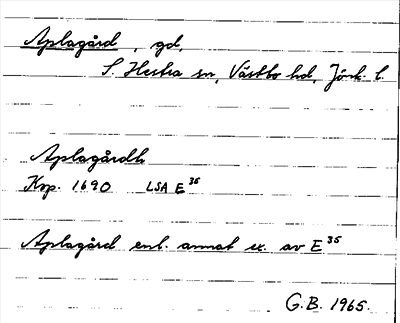 Aplagård, gd,
S. Hestra sn, Västbo hd, Jönk. l.
Aplagårdh
Kop. 1690 LSA E 35
Aplagård enl. annat ex. av E 35
G.B. 1965.